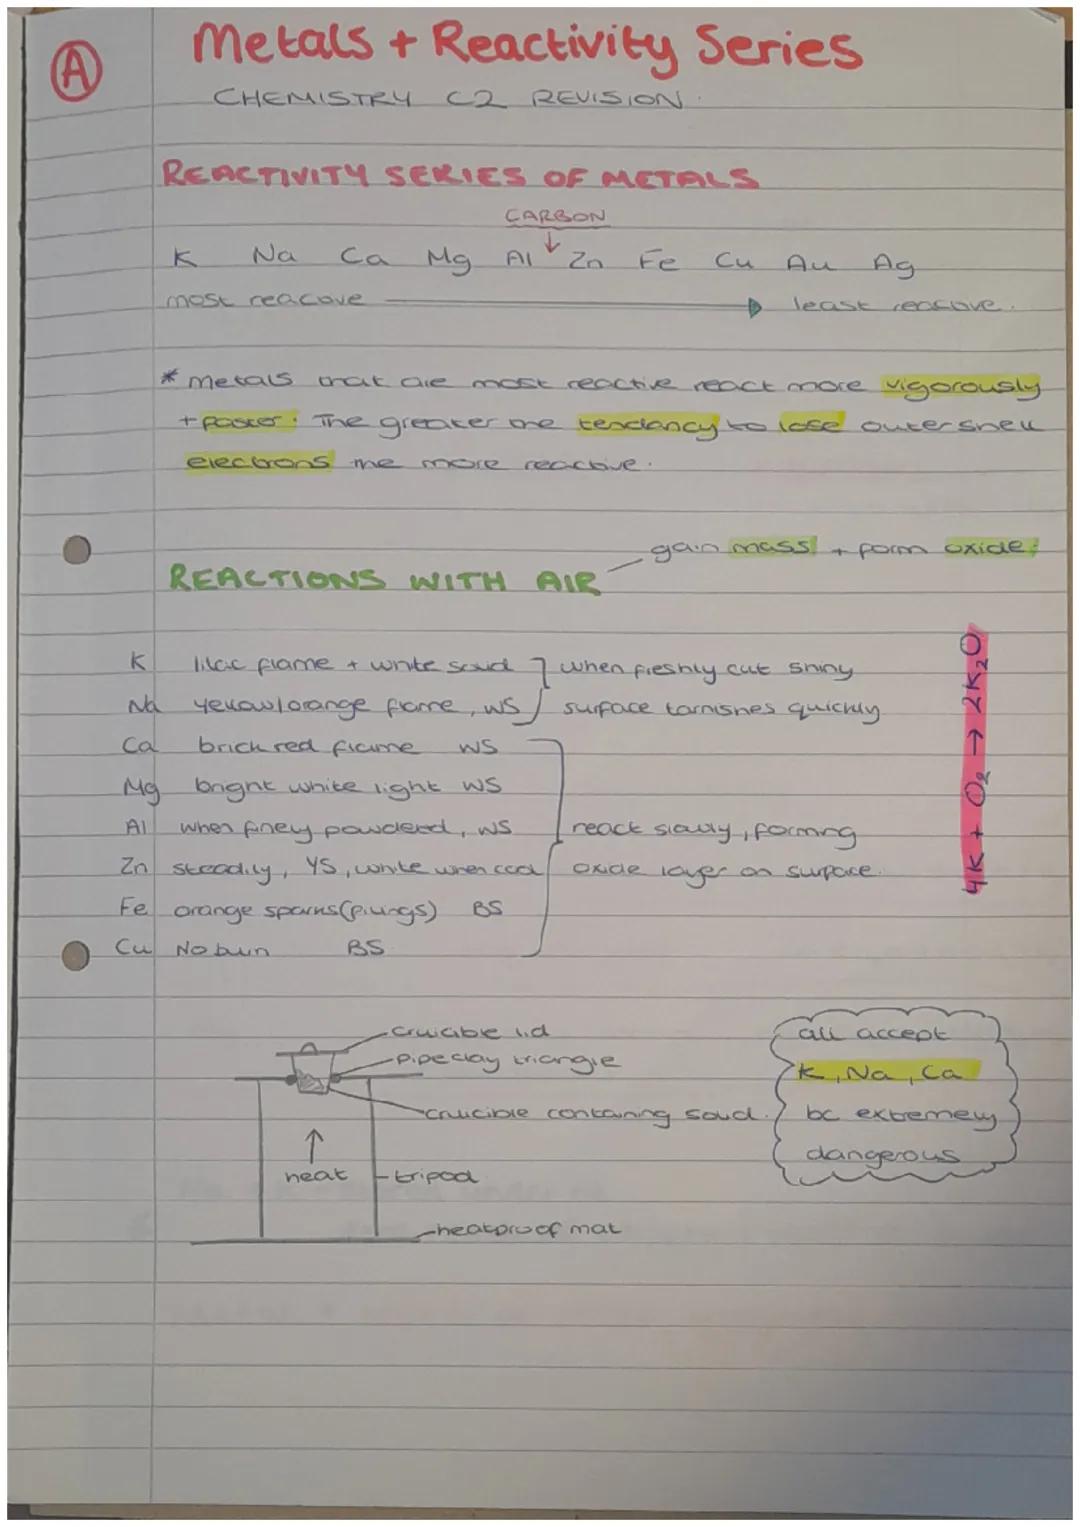 A
Metals + Reactivity Series
CHEMISTRY C2 REVISION.
REACTIVITY SERIES OF METALS
CARBON
↓
K Na Ca Mg Al Zn Fe Cu Au Ag
most reactive → least reactive.
* metals that are most reactive react more vigorously
+ faster. The greater the tendancy to lose outer shell
electrons the more reactive.
gain mass + form oxide.
REACTIONS WITH AIR
K lilac flame + white solid when freshly cut shiny
Na yellow/orange flame, WS surface tarnishes quickly
Ca brick red flame WS
Mg bright white light WS
Al when finely powdered, WS react slowly, forming
Zn steadily, YS, white when cool oxide layer on surface.
Fe orange sparks (filings) BS
Cu No burn BS
4K + O₂ → 2K₂O
crucible lid
pipeclay triangle
crucible containing solid.
↑
heat
tripod
heatproof mat
all accept
K, Na, Ca
bc extremely
dangerous